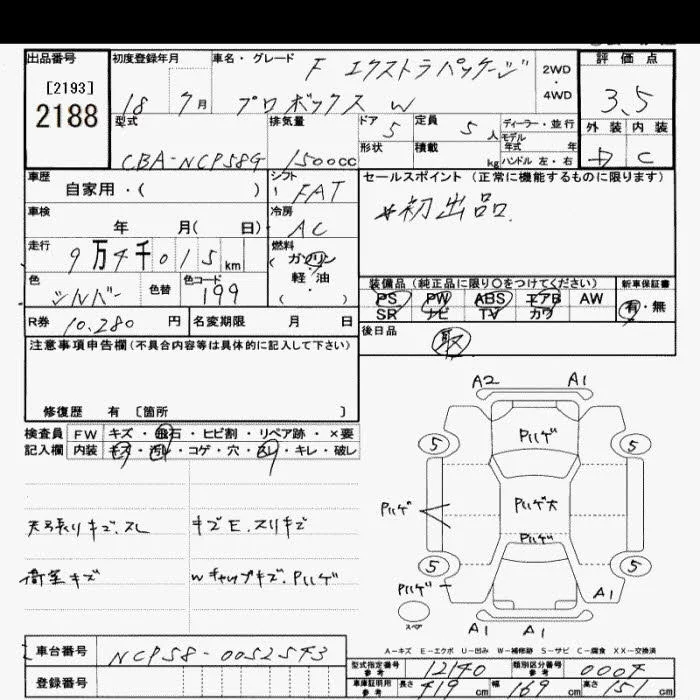 出品番号
[2193]
2188
初度登録年月
18 7月
車名・グレード
F エクストラパッケージ
プロボックス W
2WD
・
4WD
評価点
3.5
外装 内装
C
型式
CBA-NCP58G
排気量
1500cc
ドア
5
定員
5人
ディーラー・並行
モデル
年式 年
形状
積載 kg
ハンドル 左・右
車歴
自家用・( )
シフト
FAT
車検
年 月( 日)
冷房
AC
走行
9万4千015km
燃料
ガソリン
軽・油
( ・ )
色
シルバー
色替
色コード
199
R券 10,280 円
名変期限 月 日
セールスポイント(正常に機能するものに限ります)
初出品.
装備品(純正品に限り○をつけてください)
PS PW ABS エアB AW
SR ナビ TV カワ
新車保証書
有・無
後日品
取
注意事項申告欄(不具合内容等は具体的に記入して下さい)
修復歴 有 [箇所 ]
検査員
記入欄
FW キズ・飛石・ヒビ割・リペア跡・×要
内装 キズ・汚レ・コゲ・穴・スレ・キレ・破レ
天張りキズ.スレ
キズE.スリキズ
荷室キズ
Wチャップキズ.Pハゲ
A2 A1
Pハゲ
5 5
Pハゲ
Pハゲ大
Pハゲ
5 5
Pハゲ
A1
スペア
A1 A1
A-キズ E-エクボ U-凹み W-補修跡 S-サビ C-腐食 XX-交換済
車台番号
NCP58-0052543
登録番号
型式指定番号
参考
12140
類別区分番号
参考
0004
車庫証明用
参考
長さ 419cm
幅 169cm
高さ 151cm